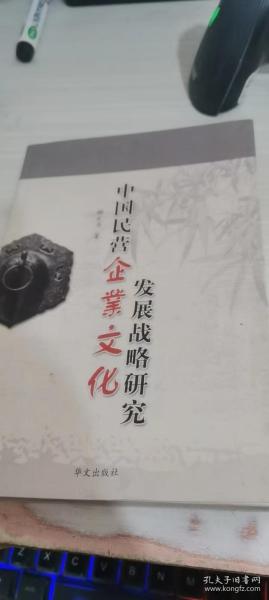 中国民营企業文化
发展战略研究
华文出版社
孔夫子旧书网
www.kongfz.com